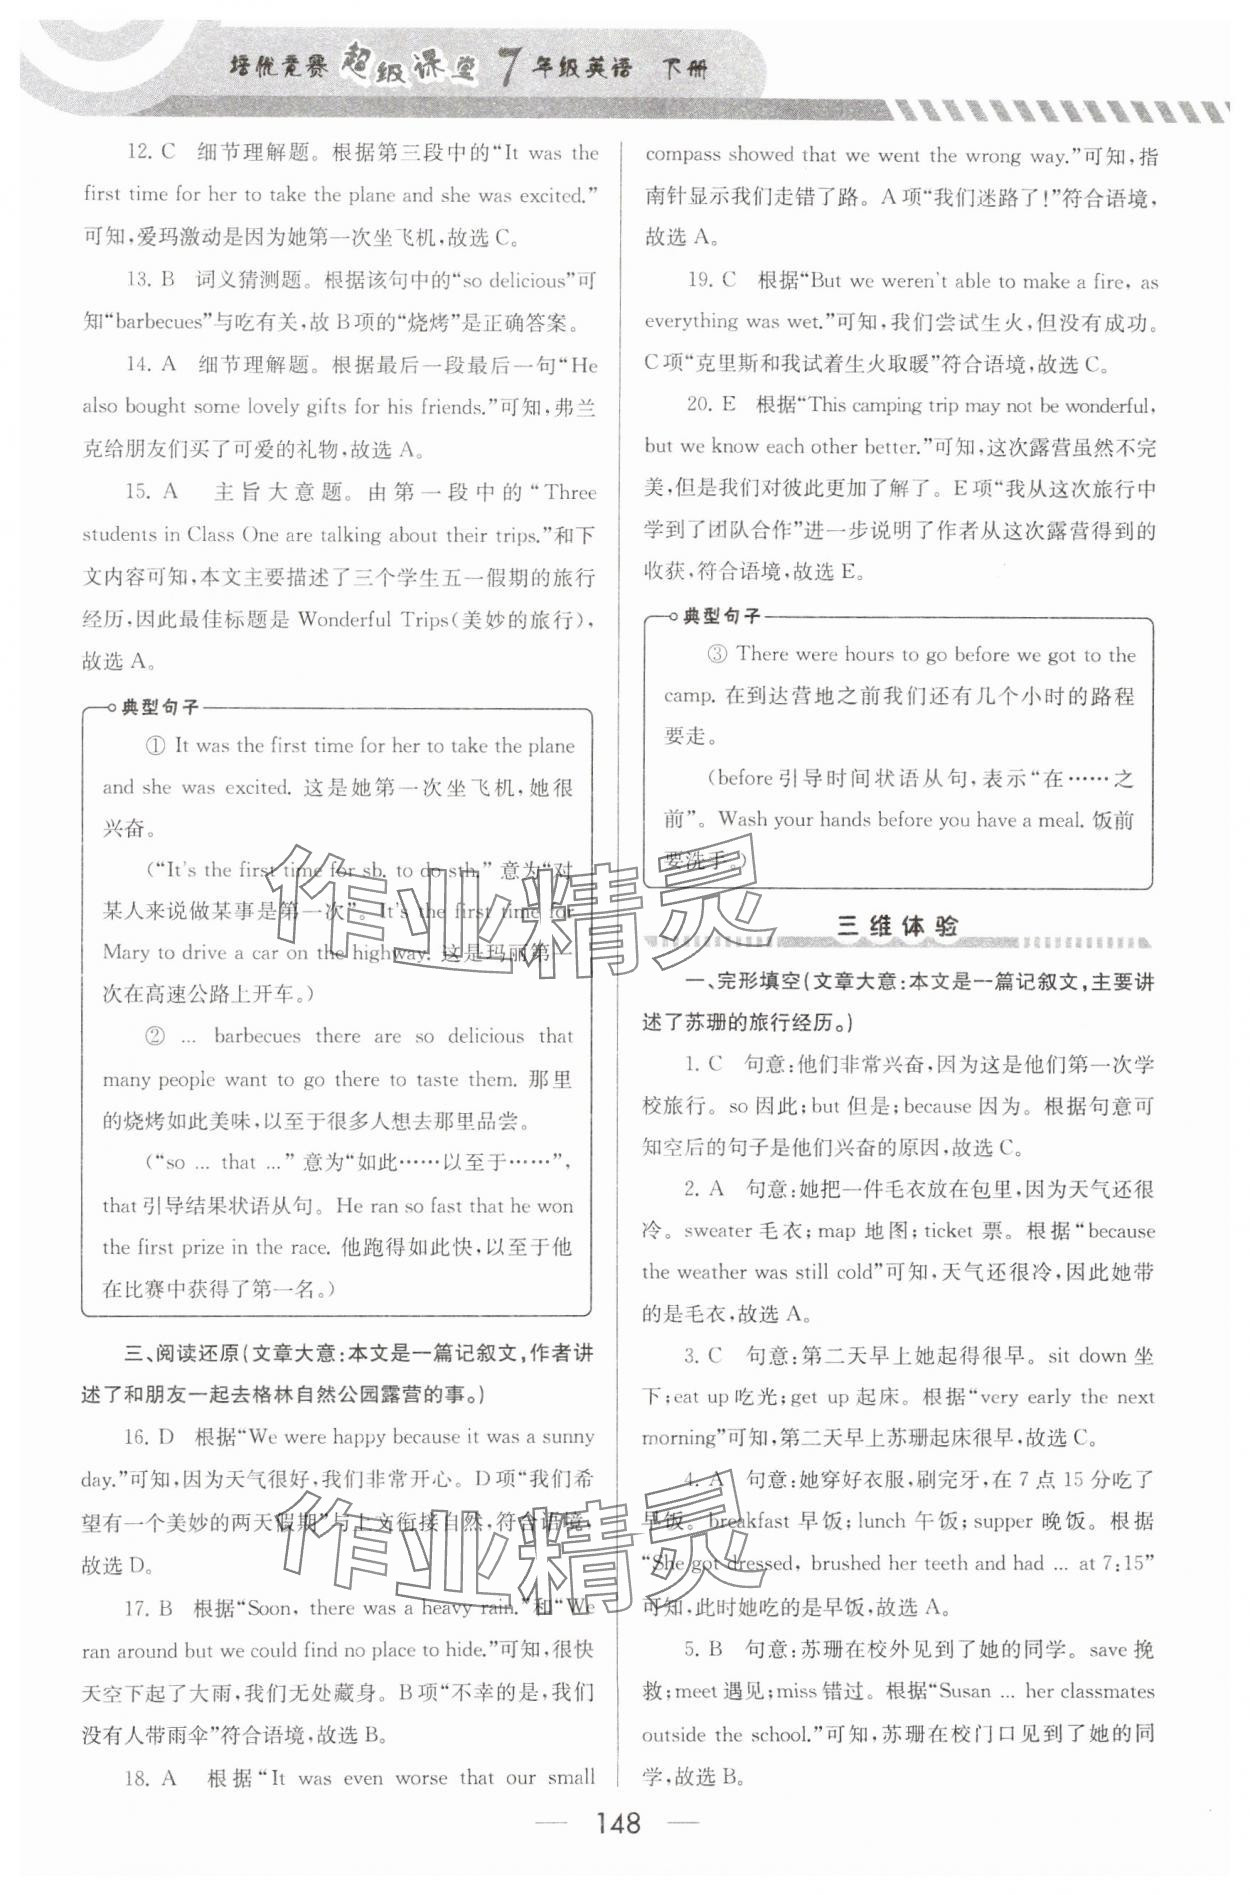 培优竞赛 超级课堂 7年级英语 下册
12. C 细节理解题。根据第三段中的“It was the
first time for her to take the plane and she was excited.”
可知,爱玛激动是因为她第一次坐飞机,故选 C。
13. B 词义猜测题。根据该句中的“so delicious”可
知“barbecues”与吃有关,故 B 项的“烧烤”是正确答案。
14. A 细节理解题。根据最后一段最后一句“He
also bought some lovely gifts for his friends.”可知,弗兰
克给朋友们买了可爱的礼物,故选 A。
15. A 主旨大意题。由第一段中的“Three
students in Class One are talking about their trips.”和下
文内容可知,本文主要描述了三个学生五一假期的旅行
经历,因此最佳标题是 Wonderful Trips(美妙的旅行),
故选 A。
典型句子
① It was the first time for her to take the plane
and she was excited. 这是她第一次坐飞机,她很
兴奋。
(“It's the first time for sb. to do sth.” 意为“对
某人来说做某事是第一次”。It's the first time for
Mary to drive a car on the highway. 这是玛丽第一
次在高速公路上开车。)
② ... barbecues there are so delicious that
many people want to go there to taste them. 那里
的烧烤如此美味,以至于很多人想去那里品尝。
(“so ... that ...” 意为“如此……以至于……”,
that 引导结果状语从句。He ran so fast that he won
the first prize in the race. 他跑得如此快,以至于他
在比赛中获得了第一名。)
三、阅读还原(文章大意:本文是一篇记叙文,作者讲
述了和朋友一起去格林自然公园露营的事。)
16. D 根据“We were happy because it was a sunny
day.”可知,因为天气很好,我们非常开心。D 项“我们希
望有一个美妙的两天假期”与上文衔接自然,符合语境,
故选 D。
17. B 根据“Soon, there was a heavy rain.”和“We
ran around but we could find no place to hide.”可知,很快
天空下起了大雨,我们无处藏身。B 项“不幸的是,我们
没有人带雨伞”符合语境,故选 B。
18. A 根据“It was even worse that our small
compass showed that we went the wrong way.”可知,指
南针显示我们走错了路。A 项“我们迷路了!”符合语境,
故选 A。
19. C 根据“But we weren't able to make a fire, as
everything was wet.”可知,我们尝试生火,但没有成功。
C 项“克里斯和我试着生火取暖”符合语境,故选 C。
20. E 根据“This camping trip may not be wonderful,
but we know each other better.”可知,这次露营虽然不完
美,但是我们对彼此更加了解了。E 项“我从这次旅行中
学到了团队合作”进一步说明了作者从这次露营得到的
收获,符合语境,故选 E。
典型句子
③ There were hours to go before we got to the
camp. 在到达营地之前我们还有几个小时的路程
要走。
(before 引导时间状语从句,表示“在……之
前”。Wash your hands before you have a meal. 饭前
要洗手。)
三维体验
一、完形填空(文章大意:本文是一篇记叙文,主要讲
述了苏珊的旅行经历。)
1. C 句意:他们非常兴奋,因为这是他们第一次学
校旅行。so 因此;but 但是;because 因为。根据句意可
知空后的句子是他们兴奋的原因,故选 C。
2. A 句意:她把一件毛衣放在包里,因为天气还很
冷。sweater 毛衣;map 地图;ticket 票。根据“because
the weather was still cold”可知,天气还很冷,因此她带
的是毛衣,故选 A。
3. C 句意:第二天早上她起得很早。sit down 坐
下;eat up 吃光;get up 起床。根据“very early the next
morning”可知,第二天早上苏珊起床很早,故选 C。
4. A 句意:她穿好衣服,刷完牙,在 7 点 15 分吃了
早饭。breakfast 早饭;lunch 午饭;supper 晚饭。根据
“She got dressed, brushed her teeth and had ... at 7:15”
可知,此时她吃的是早饭,故选 A。
5. B 句意:苏珊在校外见到了她的同学。save 挽
救;meet 遇见;miss 错过。根据“Susan ... her classmates
outside the school.”可知,苏珊在校门口见到了她的同
学,故选 B。
148
作业精灵
作业精灵